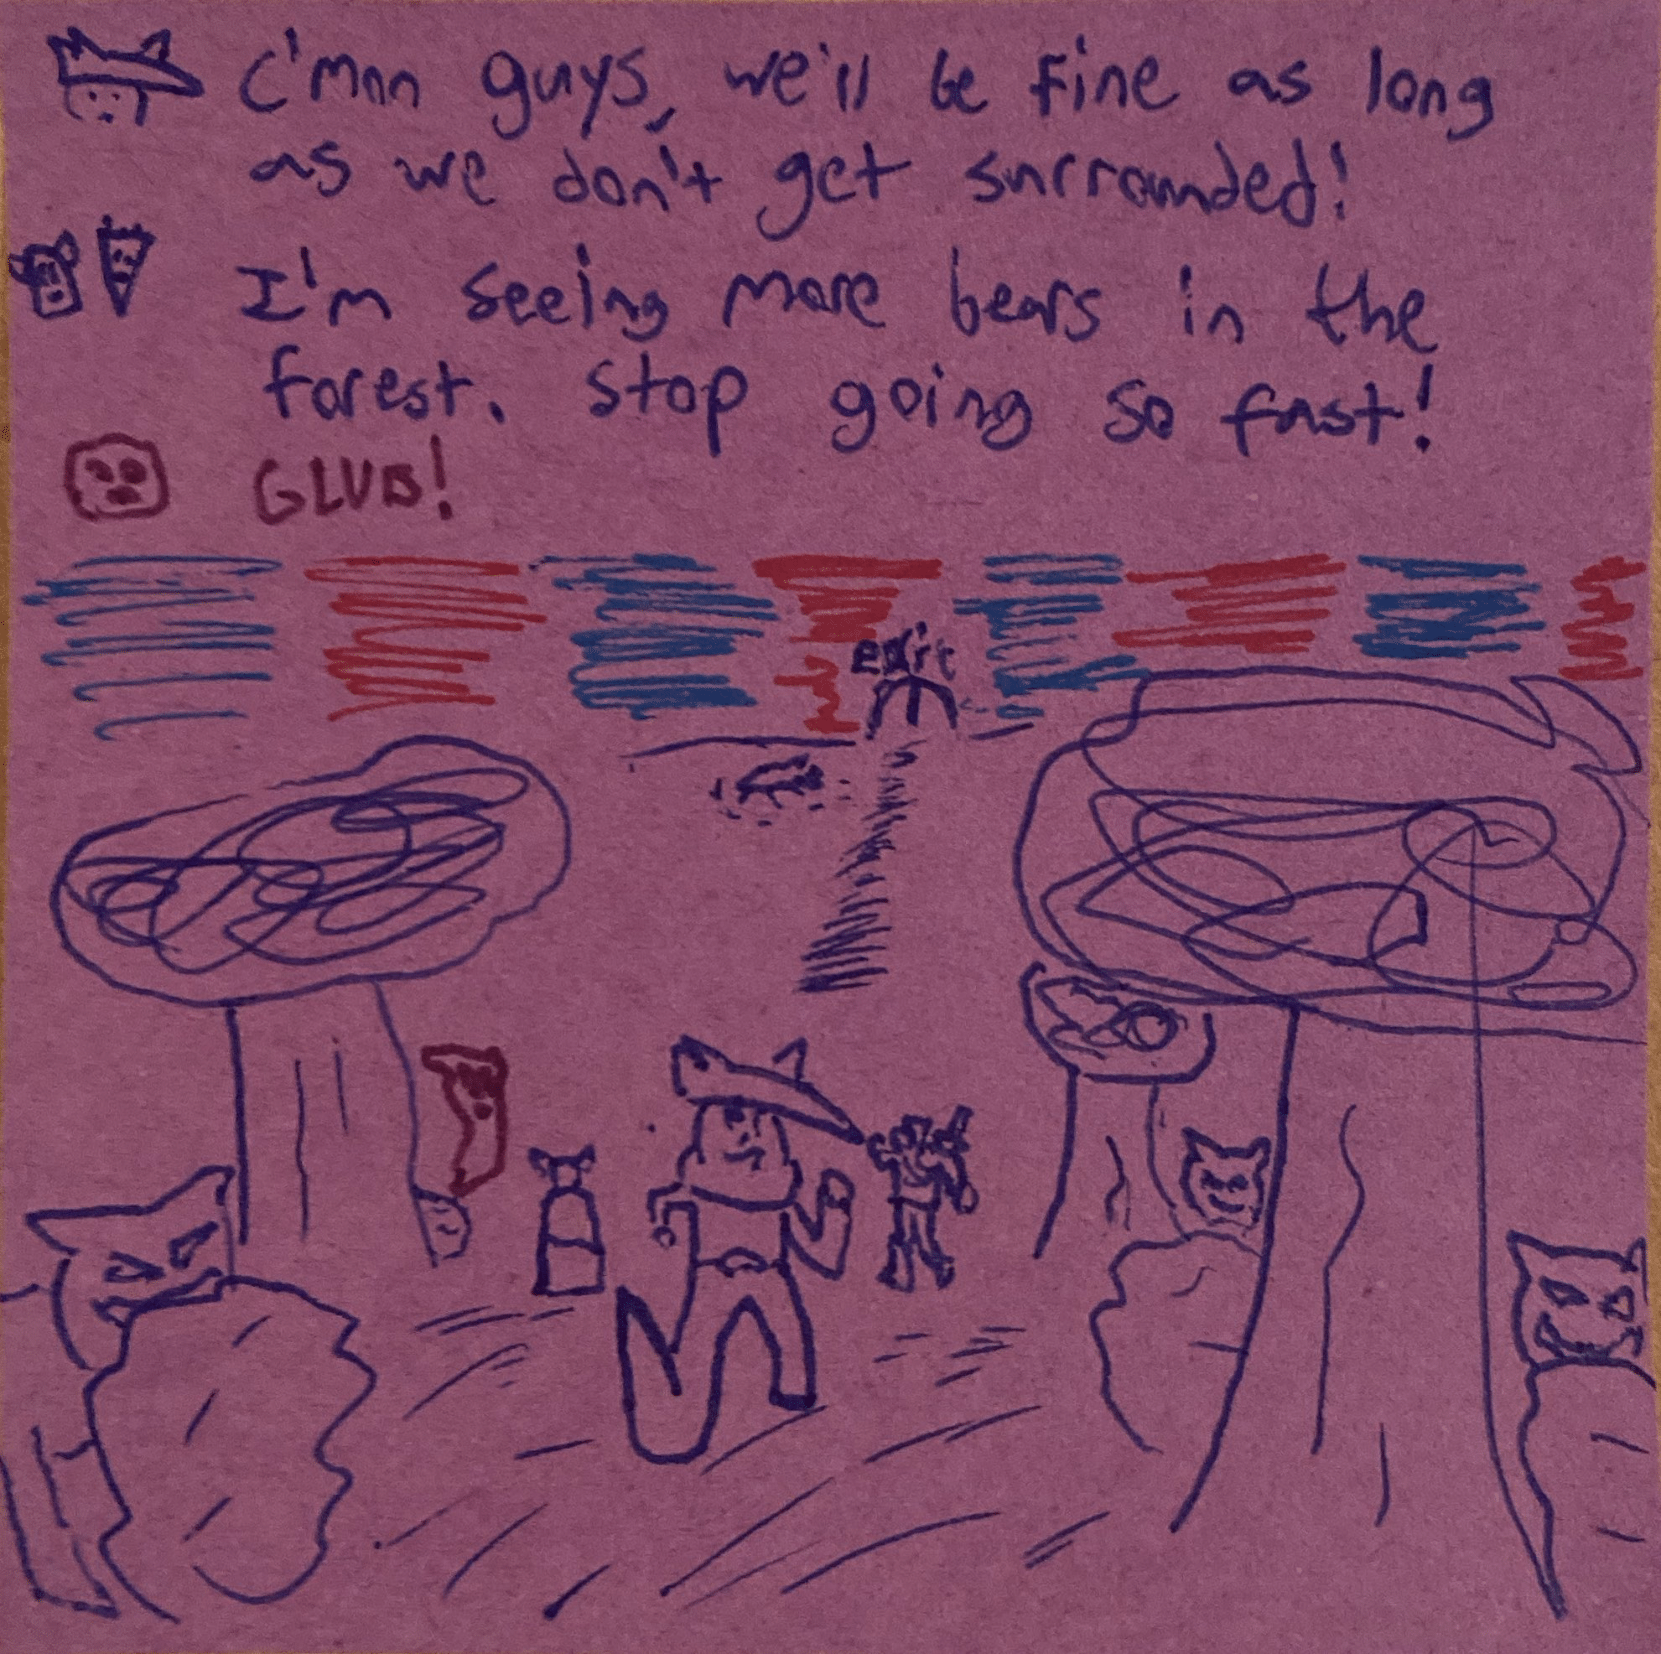 C'mon guys, we'll be fine as long
as we don't get surrounded!
I'm seeing more bears in the
forest. Stop going so fast!
GLUB!
exit